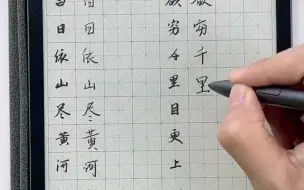 日依山尽黄河
日依山尽黄河
欲穷千里目更上
欲穷千里